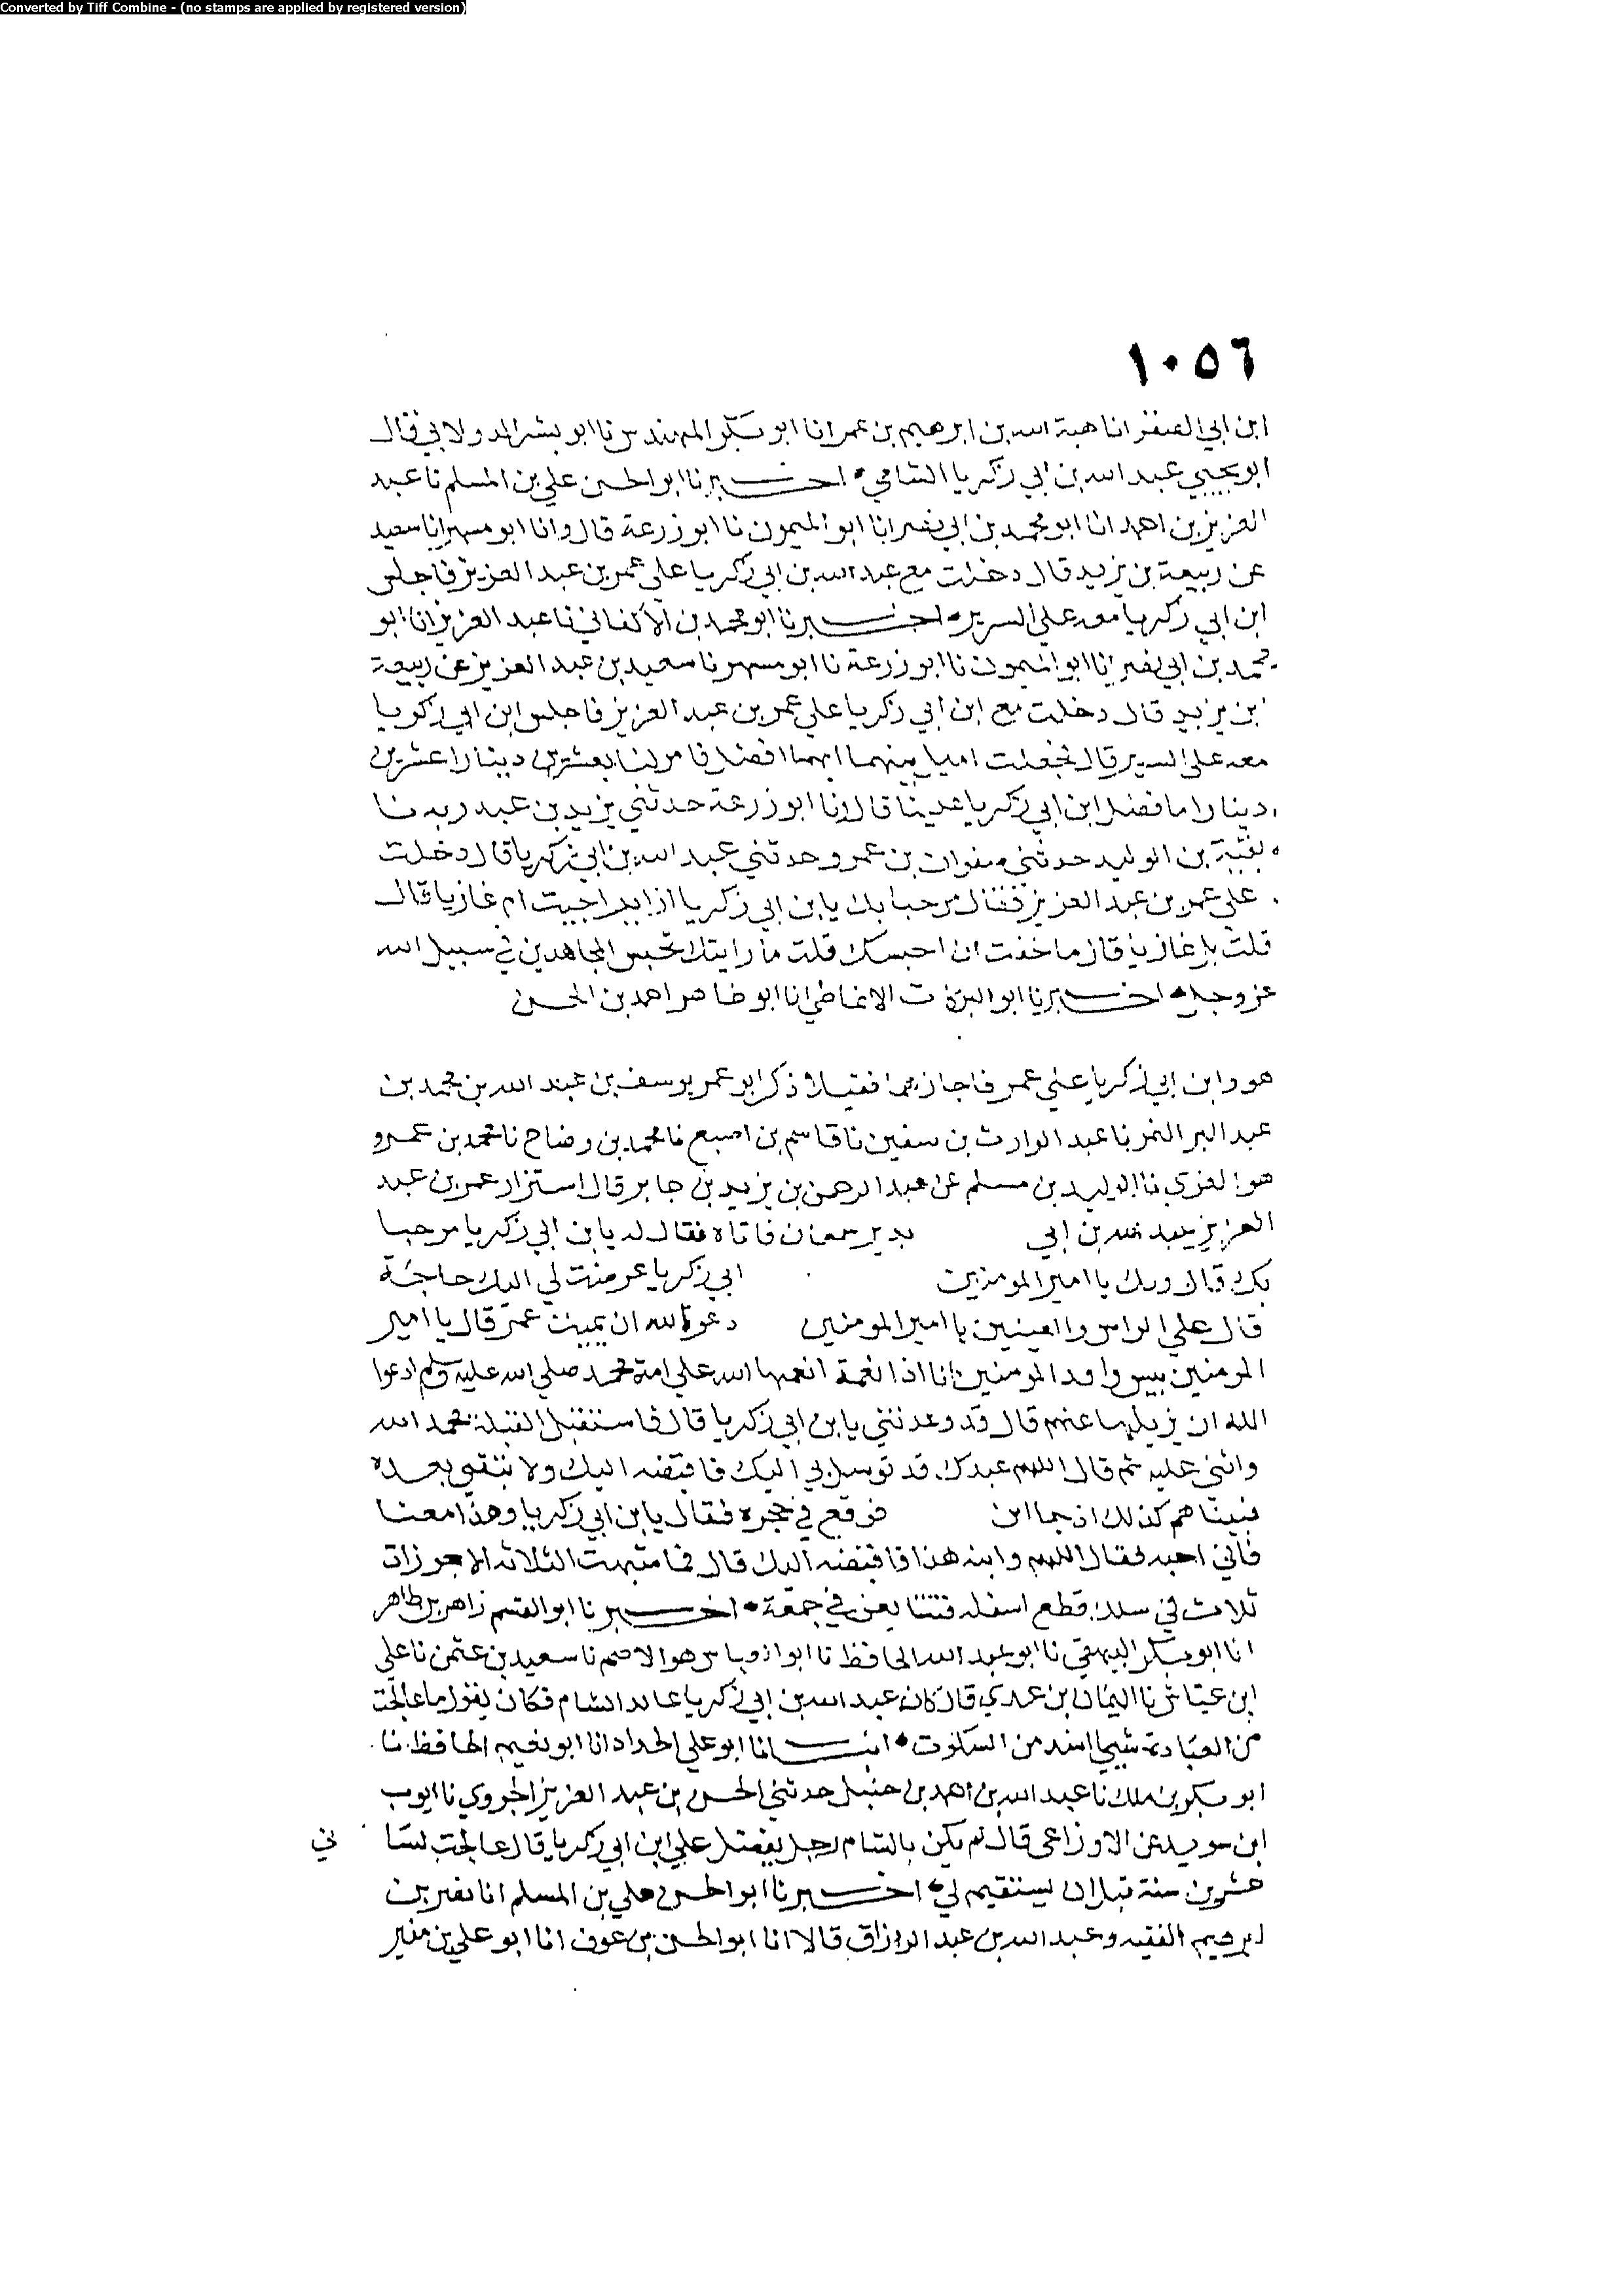 Converted by Tiff Combine - (no stamps are applied by registered version)
١٠٥٦
ابن ابي الصقر انا هبة الله بن ابرهيم بن عمر انا ابو بكر المهندس نا ابو بشر الدولابي قال
ابو يحيي عبد الله بن ابي زكريا الشامي • اخبرنا ابو الحسن علي بن المسلم نا عبد
العزيز بن احمد انا ابو محمد بن ابي نصر انا ابو الميمون نا ابو زرعة قال وانا ابو مسهر انا سعيد
عن ربيعة بن يزيد قال دخلت مع عبد الله بن ابي زكريا علي عمر بن عبد العزيز فاجلس
ابن ابي زكريا معه علي السرير • اخبرنا ابو محمد بن الأكفاني نا عبد العزيز انا ابو
محمد بن ابي نصر انا ابو الميمون نا ابو زرعة نا ابو مسهر نا سعيد بن عبد العزيز عن ربيعة
بن يزيد قال دخلت مع ابن ابي زكريا علي عمر بن عبد العزيز فاجلس ابن ابي زكريا
معه علي السرير قال فجعلت اميل بينهما ايهما افضل فامر لنا بعشرين دينارا عشرين
دينارا ما فضل ابن ابي زكريا علينا قال ونا ابو زرعة حدثني يزيد بن عبد ربه نا
بقية بن الوليد حدثني صفوان بن عمرو حدثني عبد الله بن ابي زكريا قال دخلت
علي عمر بن عبد العزيز فقال مرحبا بك يا بن ابي زكريا ازايرا جيت ام غازيا قال
قلت بل غازيا قال ما خفت ان احبسك قلت ما رايتك تحبس المجاهدين في سبيل الله
عز وجل • اخبرنا ابو البركات الانماطي انا ابو طاهر احمد بن الحسن
هو وابن ابي زكريا علي عمر فاجازهما ذكر ابو عمر يوسف بن عبد الله بن محمد بن
عبد البر النمر نا عبد الوارث بن سفين نا قاسم بن اصبع نا محمد بن وضاح نا محمد بن عمرو
هو الغزي نا الوليد بن مسلم عن عبد الرحمن بن يزيد بن جابر قال استزار عمر بن عبد
العزيز عبد الله بن ابي بدير سمعان فاتاه فقال له يا بن ابي زكريا مرحبا
بك قال وبك يا امير المومنين ابي زكريا عرضت لي اليك حاجة
قال علي الراس والعينين يا امير المومنين دعوة الله ان يميت عمر قال يا امير
المومنين بيس وافد المومنين انا اذا نعمة انعمها الله علي امة محمد صلي الله عليه وسلم ادعوا
الله ان يزيلها عنهم قال قد وعدتني يا بن ابي زكريا قال فاستقبل القبلة فحمد الله
واثني عليه ثم قال اللهم عبدك قد توسل بي اليك فاقبضه اليك ولا تبقني بعده
فبينا هم كذلك اذ جا ابن فوقع في حجره فقال يا بن ابي زكريا وهذا معنا
فاني احبه فقال اللهم وابنه هذا فاقبضه اليك قال فما شبهت الثلاثه الا بخرزات
ثلاث في سلك قطع اسفله فتتابعن في جمعة • اخبرنا ابو القسم زاهر بن طاهر
انا ابو بكر البيهقي نا ابو عبد الله الحافظ نا ابو هو الاصم نا سعيد بن عثمن نا علي
ابن عياش نا اليمان بن عدي قال كان عبد الله بن ابي زكريا عابد الشام فكان يقول ما عالجت
من العبادة شييا اشد من السكوت • انبانا ابو علي الحداد انا ابو نعيم الحافظ نا
ابو بكر بن ملك نا عبد الله بن احمد بن حنبل حدثني الحسن بن عبد العزيز الجروي نا ايوب
ابن سويد عن الاوزاعي قال لم يكن بالشام رجل يفضل علي ابن ابي زكريا قال عالجت لسا ني
عشرين سنة قبل ان يستقيم لي • اخبرنا ابو الحسن علي بن المسلم انا نصر بن
ابرهيم الفقيه وعبد الله بن عبد الرزاق قالا انا ابو الحسن بن عوف انا ابو علي بن منير